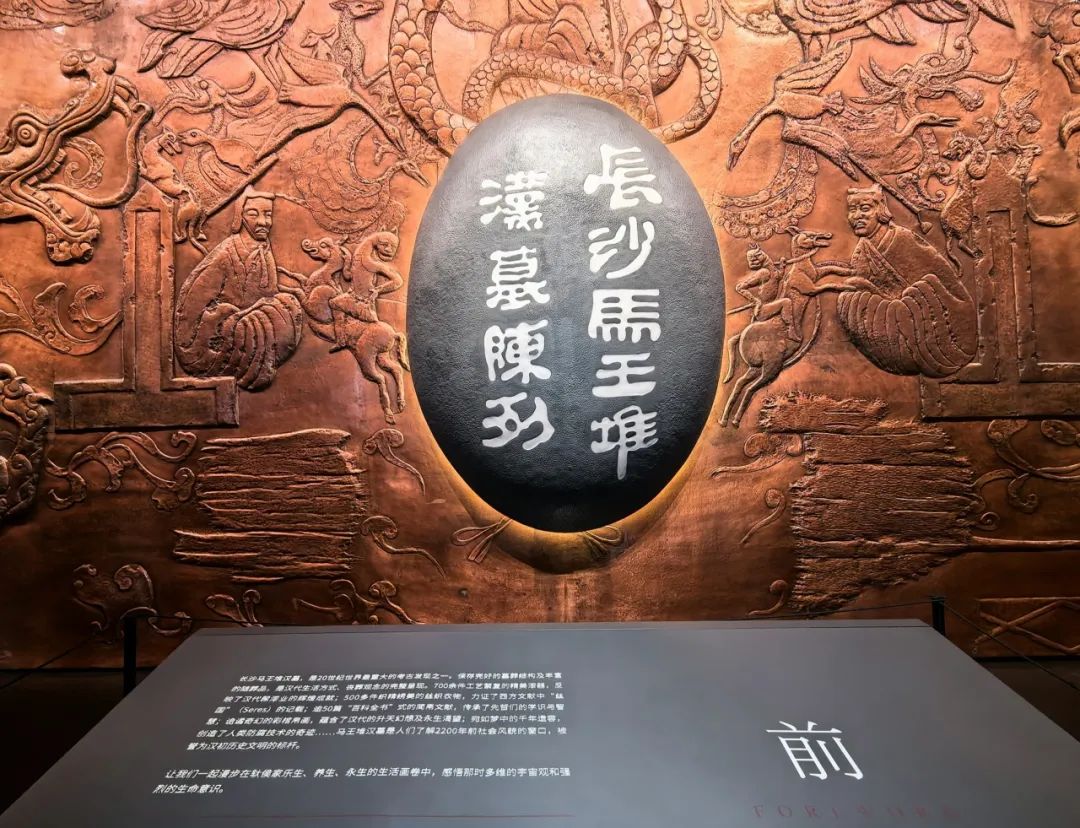 長沙馬王堆
漢墓陳列
长沙马王堆汉墓，是20世纪世界最重大的考古发现之一。保存完好的墓葬结构及丰富
的随葬品，是汉代生活方式、丧葬观念的完整呈现。700余件工艺繁复的精美漆器，反
映了汉代髹漆业的辉煌成就；500多件织精绣美的丝织衣物，力证了西方文献中“丝
国”（Seres）的记载；逾50篇“百科全书”式的简帛文献，传承了先哲们的学识与智
慧；诡谲奇幻的彩棺帛画，蕴含了汉代的升天幻想及永生渴望；宛如梦中的千年遗容，
创造了人类防腐技术的奇迹……马王堆汉墓是人们了解2200年前社会风貌的窗口，被
誉为汉初历史文明的标杆。
让我们一起漫步在轪侯家乐生、养生、永生的生活画卷中，感悟那时多维的宇宙观和强
烈的生命意识。
前